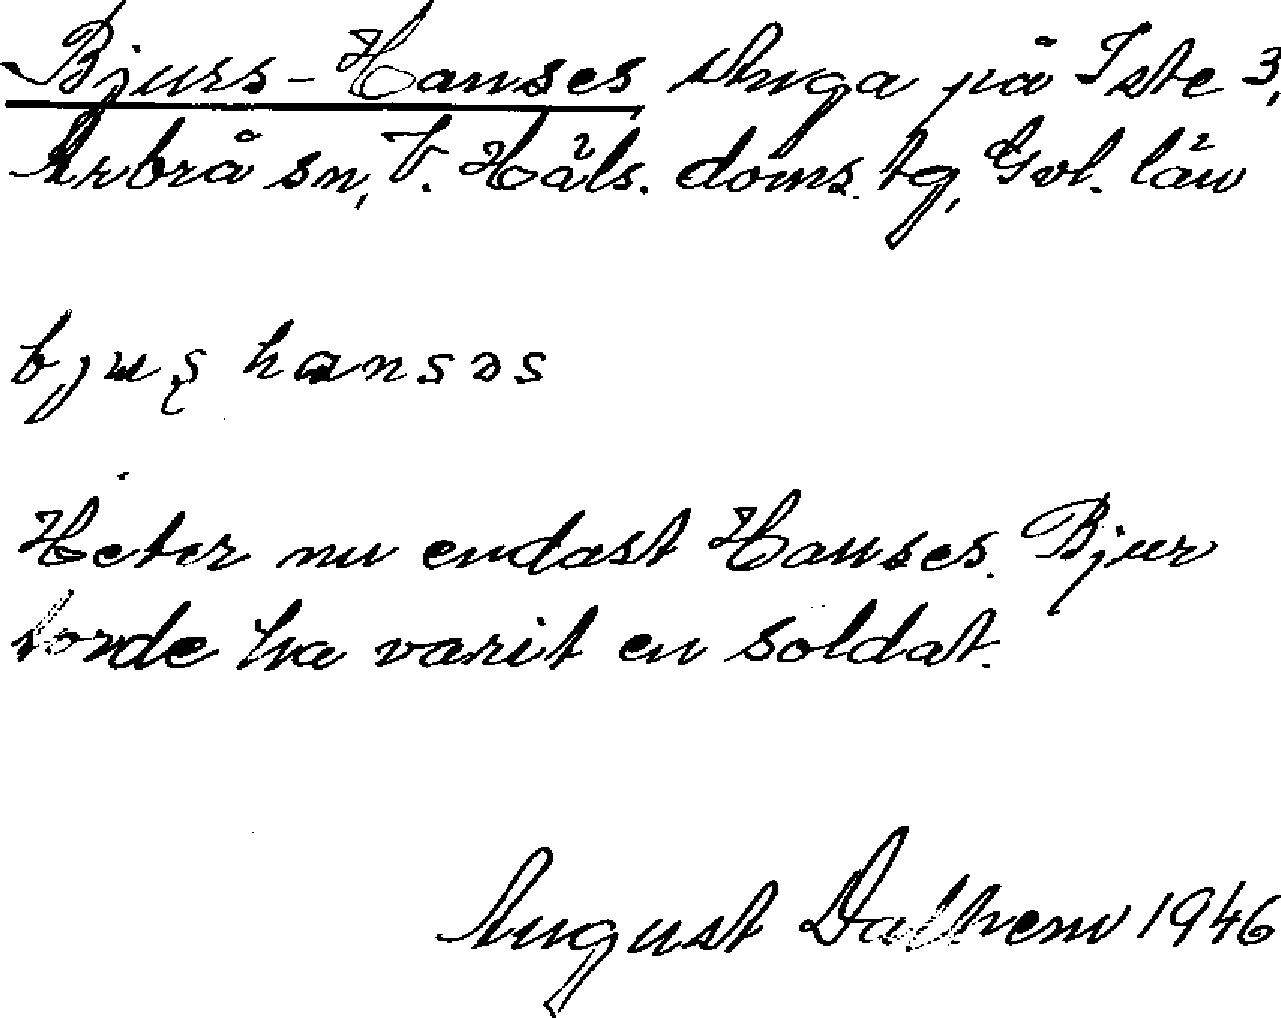 Bjurs-Hanses stuga på Iste 3,
Arbrå sn, V. Häls. doms. tg, Gvl. län
bjuʂ hansəs
Heter nu endast Hanses. Bjur
torde ha varit en soldat.
August Dalhem 1946